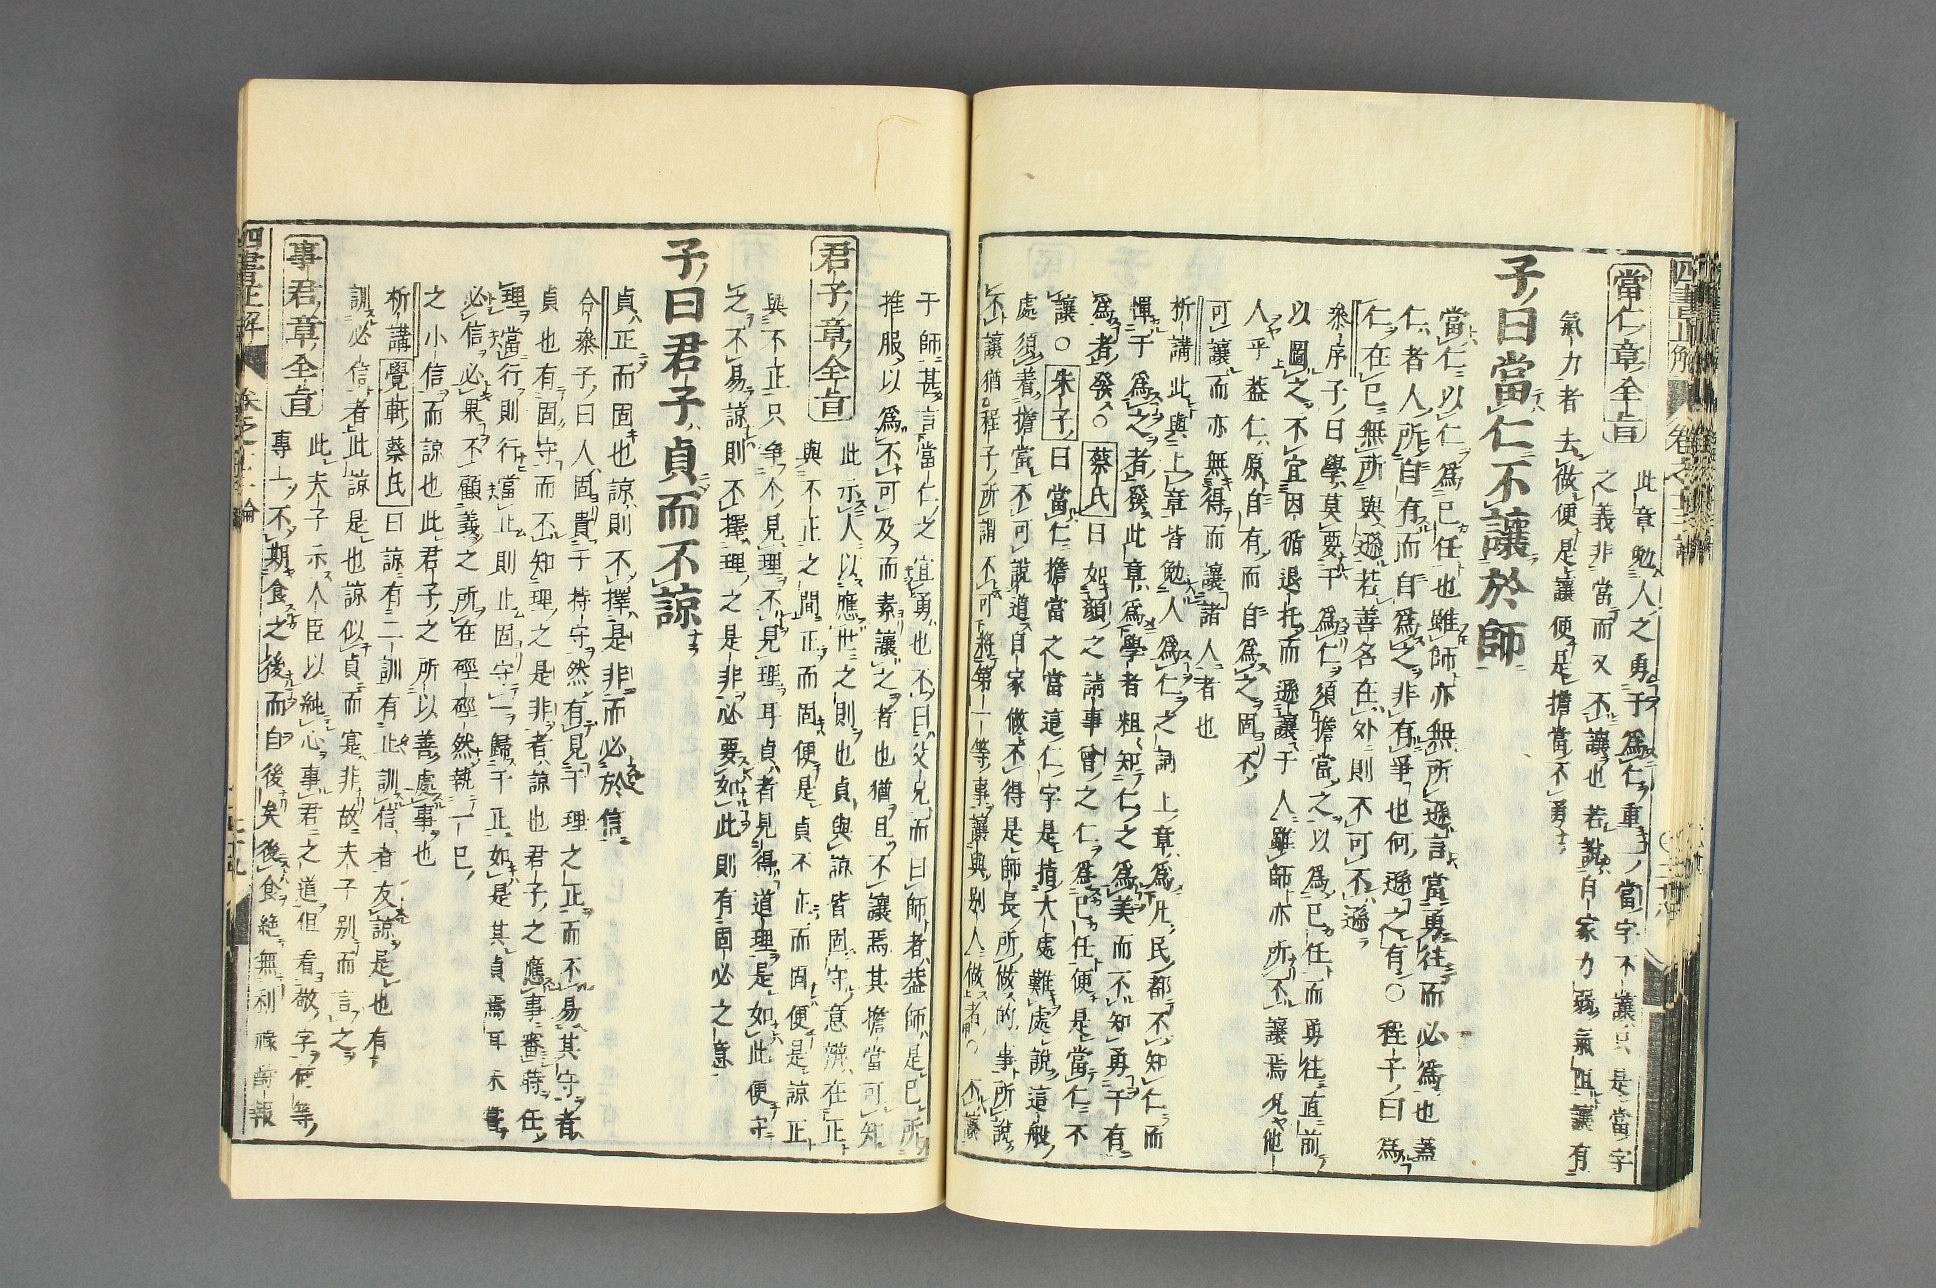 當仁章全旨
此章勉人之勇于為仁重一當字不讓只是當字
之義非當而又不讓也若說自家力弱氣阻讓有
氣力者去做便是讓便是擔當不勇
子曰當仁不讓於師
當仁以仁為己任也雖師亦無所遜言當勇往而必為也蓋
仁者人所自有而自為之非有爭也何遜之有○程子曰為
仁在己無所與遜若善名在外則不可不遜
參序子曰學莫要于為仁須擔當之以為己任而勇往直前
以圖之不宜因循退托而遜讓于人雖師亦所不讓焉况他
人乎蓋仁原自有而自為之固不
可讓而亦無得而讓諸人者也
析講此與上章皆勉人為仁之詞上章為凡民都不知仁而
憚于為之者發此章為學者粗知仁之為美而不知勇于有
為者發○蔡氏曰如顏之請事曾之仁為己任便是當仁不
讓○朱子曰當仁擔當之當這仁字是指大處難處說這般
處須着擔當不可說道自家做不得是師長所做的事所說
不讓猶程子所謂不可將第一等事讓與別人做者
于師甚言當仁之宜勇也不曰父兄而曰師者蓋師是己所
推服以為不可及而素讓之者也猶且不讓焉其擔當可知
君子章全旨
此示人以應世之則也貞與諒皆固守意辨在正
與不正之間正而固便是貞不正而固便是諒正
與不正只爭个見理不見理耳貞者見得道理是如此便守
之不易諒則不擇理之是非必要如此則有固必之意
子曰君子貞而不諒
貞正而固也諒則不擇是非而必於信
合參子曰人固貴于持守然有見于理之正而不易其守者
貞也有固守而不知理之是非者諒也君子之應事審時任
理當行則行當止則止固守一歸于正如是其貞焉耳未嘗
必信必果不顧義之所在硜硜然執一己
之小信而諒也此君子之所以善處事也
析講覺軒蔡氏曰諒有二訓有止訓信者友諒是也有
訓必信者此諒是也諒似貞而寔非故夫子別而言之
事君章全旨
此夫子示人臣以純心事君之道但看敬字何等
專一不期食之後而自後矣後食絕無利祿
四書正解